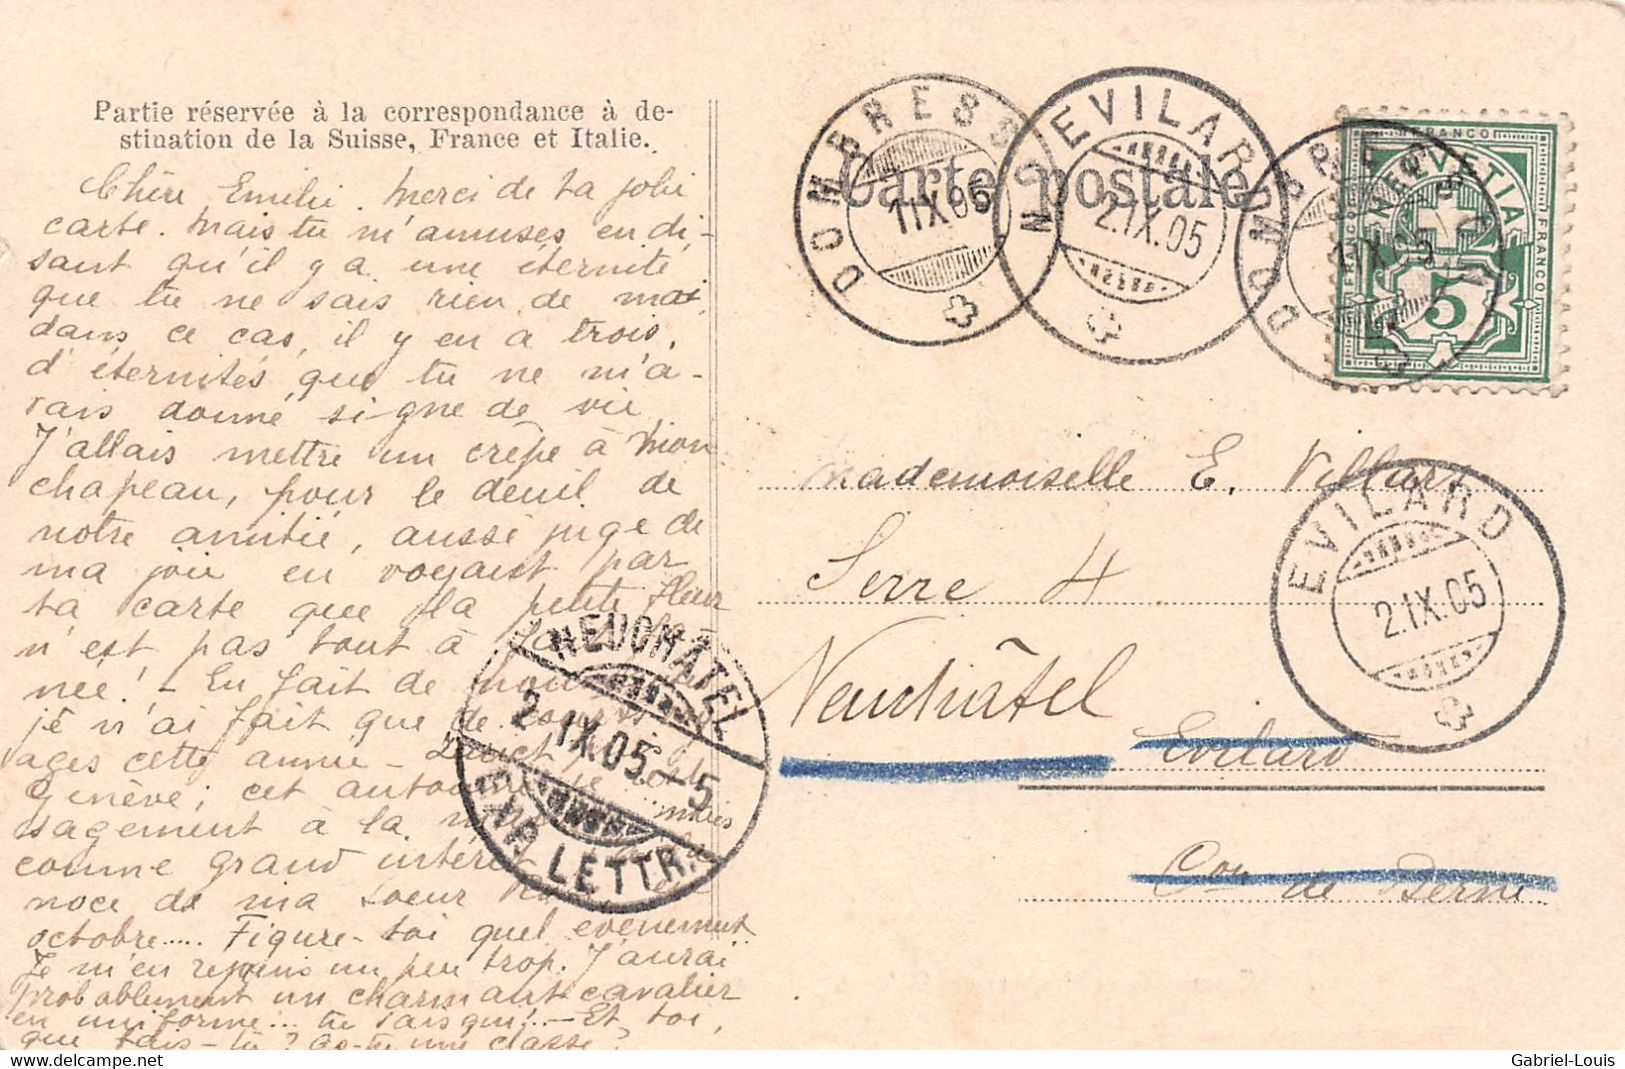 Partie réservée à la correspondance à de-
stination de la Suisse, France et Italie.
Chère Emilie. Merci de ta jolie
carte. Mais tu m'amuses en di-
sant qu'il y a une éternité
que tu ne sais rien de moi,
dans ce cas, il y en a trois,
d'éternités que tu ne m'a-
vais donné signe de vie
J'allais mettre un crêpe à mon
chapeau, pour le deuil de
notre amitié, aussi juge de
ma joie en voyant par
ta carte que la petite fleur
n'est pas tout à
née! - En fait de
je n'ai fait que de
ages cette année -
Genève; cet automne
sagement à la
comme grand intérêt
noce de ma soeur
octobre..... Figure-toi quel évènement
Je m'en réjouis un peu trop. J'aurai
probablement un charmant cavalier
en uniforme... tu sais qui! - Et toi,
que fais-tu? as-tu une classe?
Carte postale
DOMBRESSON
1 IX 05
EVILARD
2.IX.05
DOMBRESSON
1 IX 05
HELVETIA
FRANCO
FRANCO
FRANCO
5
Mademoiselle E. Villars
Serre 4
Neuchâtel
EVILARD
2.IX.05
Evilard
Con de Berne
NEUCHÂTEL
2.IX.05.-5
EXP. LETTR.
delcampe.net
Gabriel-Louis